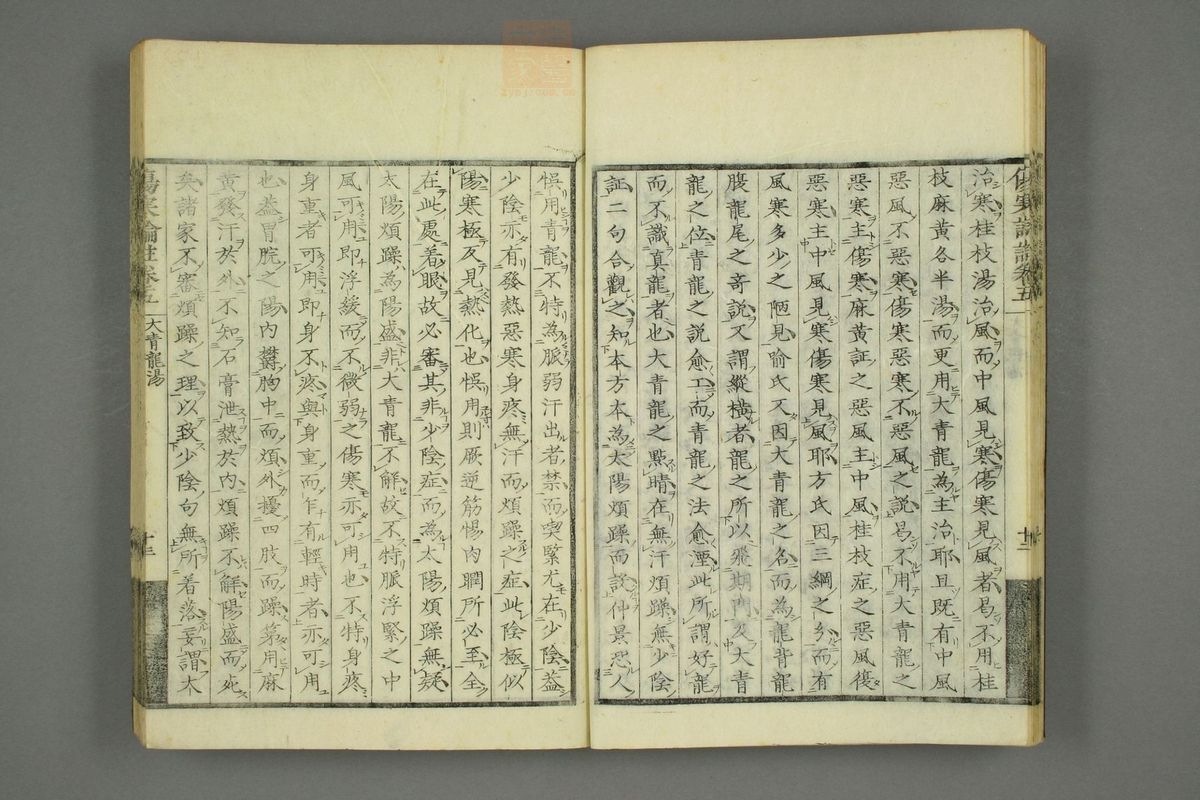 治寒桂枝湯治風而中風見寒傷寒見風者曷不用桂
枝麻黃各半湯而更用大青龍為主治耶且既有中風
惡風不惡寒傷寒惡寒不惡風之說曷不用大青龍之
惡寒主傷寒麻黃証之惡風主中風桂枝症之惡風復
惡寒主中風見寒傷寒見風耶方氏因三綱之分而有
風寒多少之陋見喻氏又因大青龍之名而為龍背龍
腹龍尾之奇說又謂縱橫者龍之所以飛期門又大青
龍之位青龍之說愈工而青龍之法愈湮此所謂好龍
而不識真龍者也大青龍之點睛在無汗煩躁無少陰
証二句合觀之知本方本為太陽煩躁而說仲景恐人
悞用青龍不特為脈弱汗出者禁而喫緊尤在少陰蓋
少陰亦有發熱惡寒身疼無汗而煩躁之症此陰極似
陽寒極反見熱化也悞用則厥逆筋惕肉瞤所必至全
在此處着眼故必審其非少陰症而為太陽煩躁無疑
太陽煩躁為陽盛非大青龍不解故不特脈浮緊之中
風可用即浮緩而不微弱之傷寒亦可用也不特身疼
身重者可用即身不疼與身重而乍有輕時者亦可用
也蓋胃脘之陽內鬱胸中而煩外擾四肢而躁第用麻
黃發汗於外不知石膏泄熱於內煩躁不解陽盛而死
矣諸家不審煩躁之理以致少陰句無所着落妄謂太
傷寒論註卷五
大青龍湯
十三